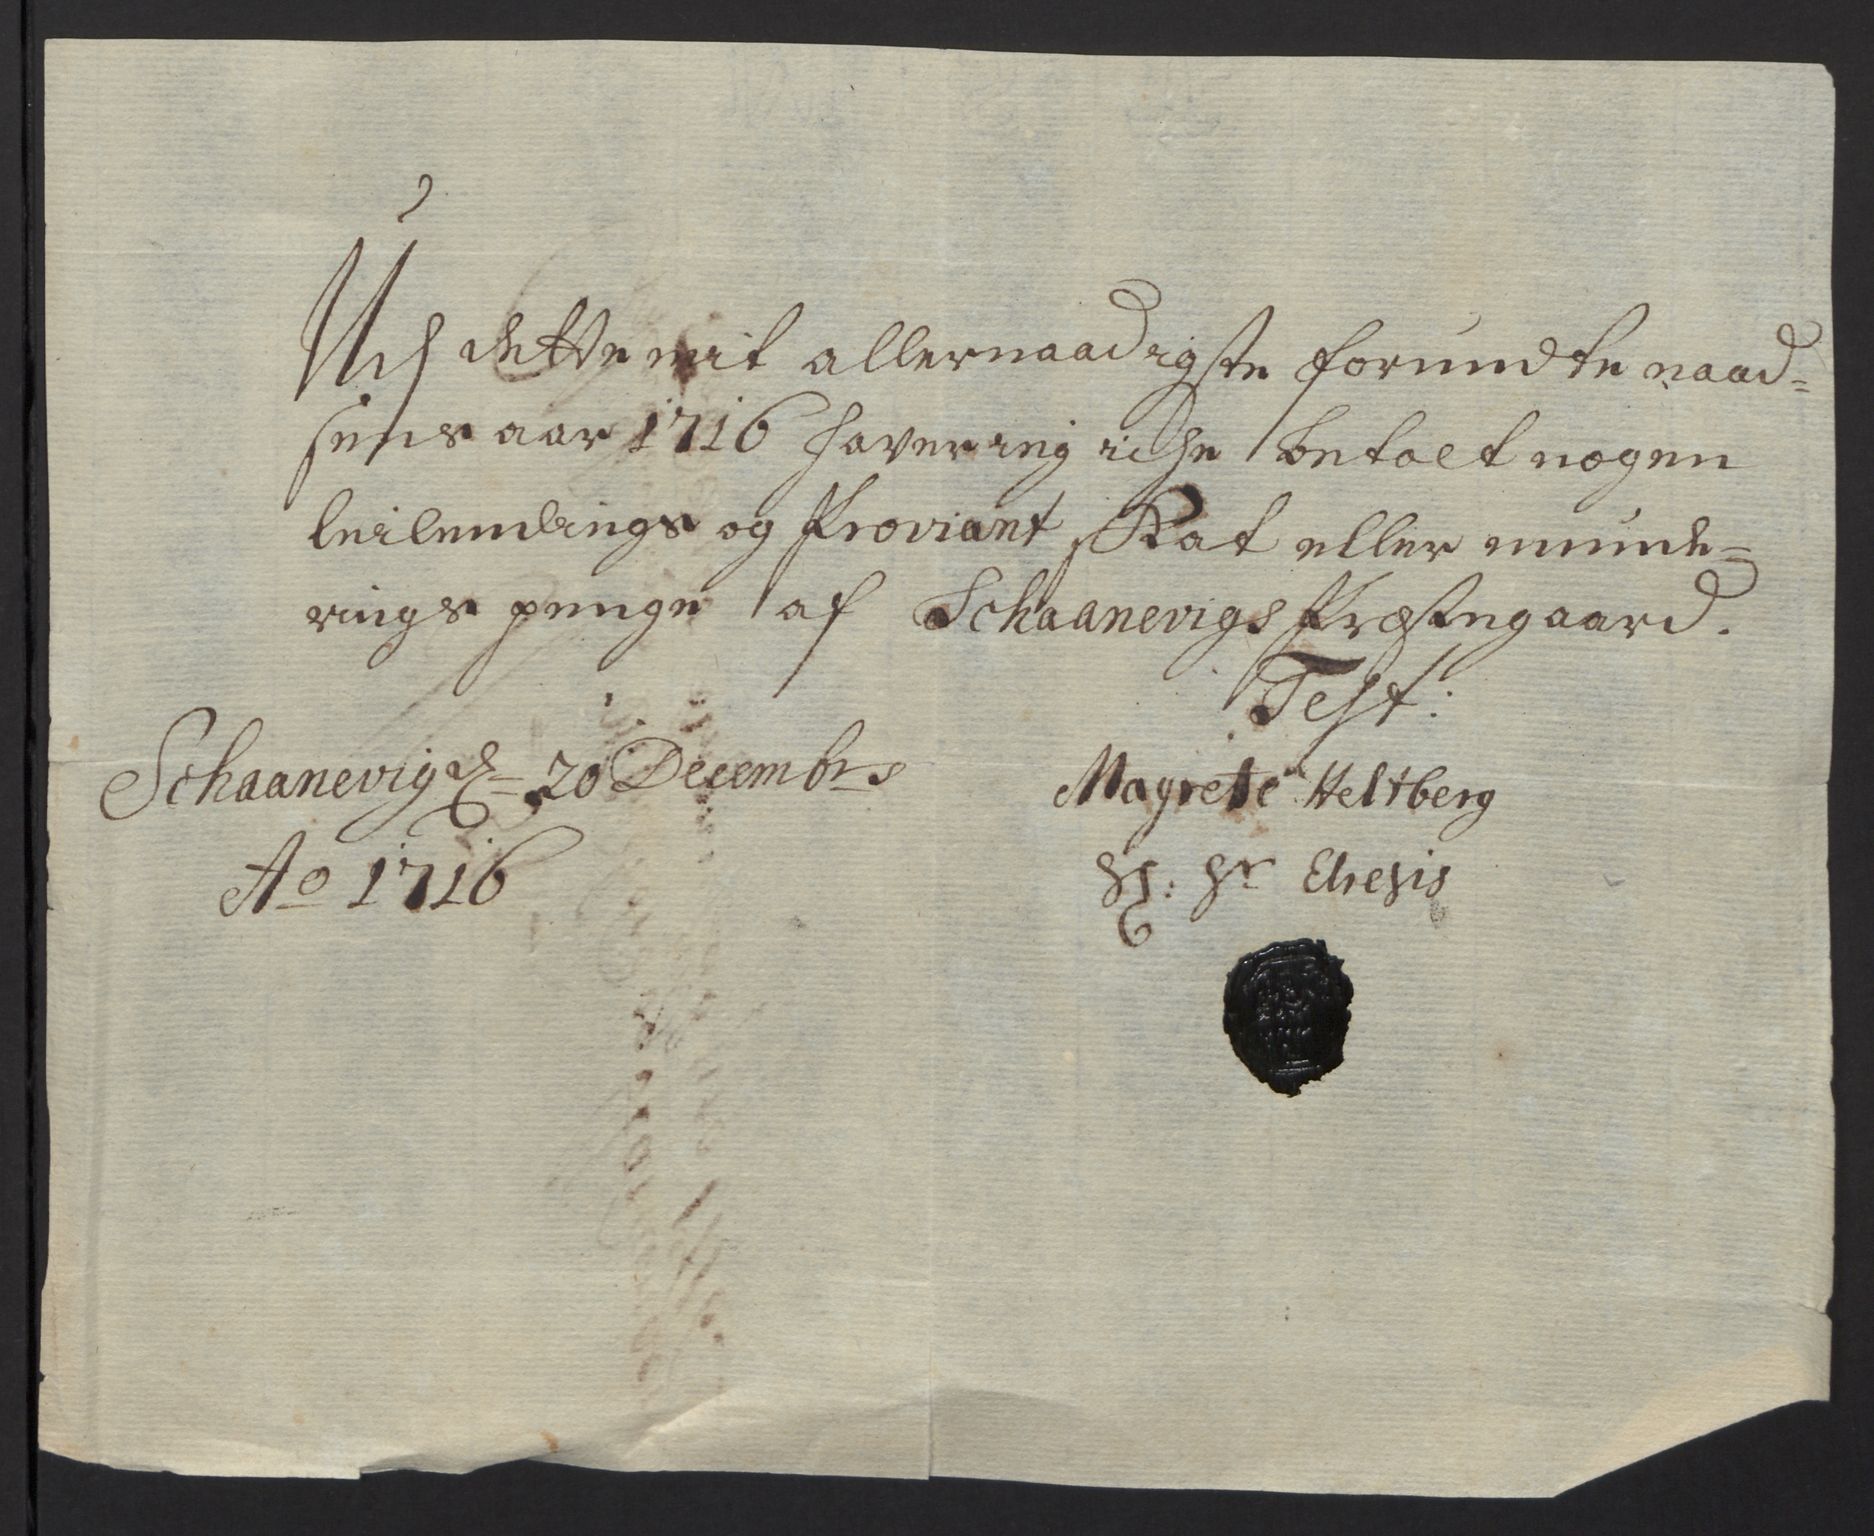 Udj dette mit allernaadigste forundte naad=
sens aar 1716 haver ieg iche betalt nogen
leilendings og Proviant Skat eller munde=
rings penge af Schaanevigs Præstegaard.
Test:
Schaanevig d 20 Decembrs
Ao 1716
Magrete Heltberg
Sr